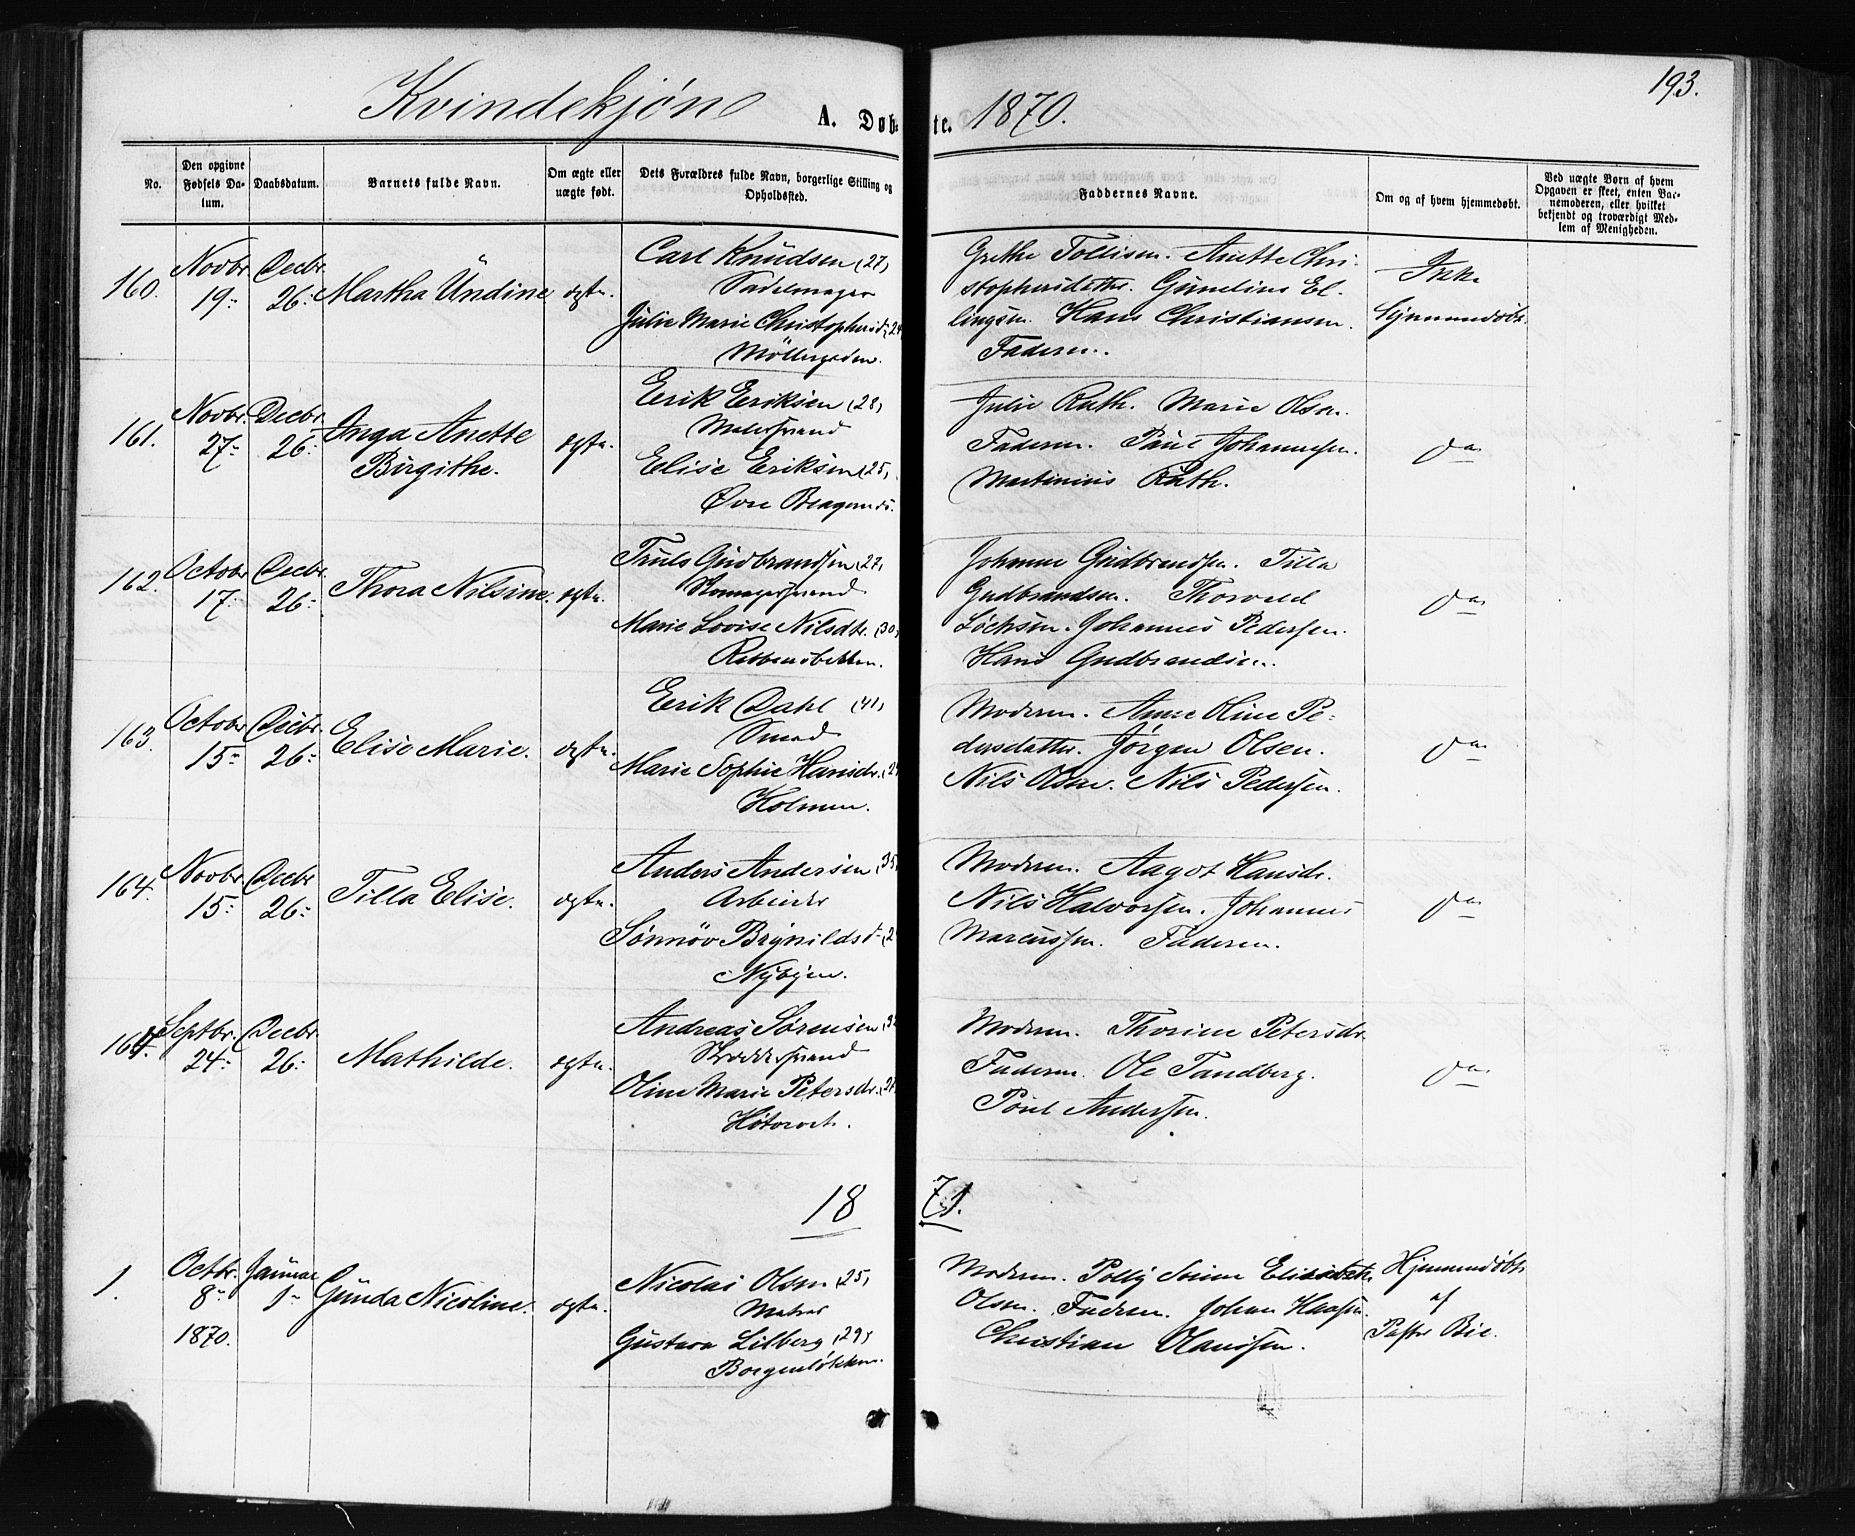 193.
Kvindekjøn A. Døbte. 1870.
No.
Den opgivne Fødsels Datum.
Daabsdatum.
Barnets fulde Navn.
Om ægte eller uægte født.
Dets Forældres fulde Navn, borgerlige Stilling og Opholdssted.
Faddernes Navne.
Om og af hvem hjemmedøbt.
Ved uægte Børn af hvem Opgaven er skeet, enten Barnemoderen, eller hvilket bekjendt og troværdigt Medlem af Menigheden.
160.
Novbr. 19.
Decbr. 26.
Martha Undine
ægte.
Carl Knudsen (27)
Sadelmager
Julie Marie Christophersd.
Møllergaden.
Grethe Tollisen. Anette Chri-
stophersdatter. Gunelius El-
lingsen. Hans Christiansen.
Faderen.
Ikke
hjemmedøbt.
161.
Novbr. 27.
Decbr. 26.
Inga Anette
Birgithe.
ægte.
Erik Eriksen (28)
Malersvend
Elise Eriksen (25)
Øvre Bragernes.
Julie Rath. Marie Olsen.
Faderen. Paul Johannessen.
Martinius Rath.
do
162.
Octobr. 17.
Decbr. 26.
Thora Nilsine.
ægte.
Truls Gudbrandsen (27)
Skomagersvend
Marie Lovise Nilsdtr. (30)
Johanne Gudbrandsen. Tilla
Gudbrandsen. Thorvald
Johannes Pedersen.
Hans Gudbrandsen.
do
163.
Octobr. 15.
Decbr. 26.
Elise Marie.
ægte.
Erik Dahl (41)
Smed
Marie Sophie Hansdr.
Holmen.
Moderen. Anne Oline Pe-
dersdatter. Jørgen Olsen.
Nils Olsen. Nils Pedersen.
do
164.
Novbr. 15.
Decbr. 26.
Tilla Elise.
ægte.
Anders Andersen (35)
Arbeider
Sønnøv Brynildsd.
Nybyen.
Moderen. Aagot Hansdr.
Nils Halvorsen. Johannes
Marcussen. Faderen.
do
165.
Septbr. 24.
Decbr. 26.
Mathilde.
ægte.
Andreas Sørensen
Skræddersvend
Oline Marie Petersdr.
Høtorvet.
Moderen. Thorine Petersdr.
Faderen. Ole Tandberg.
Poul Andersen.
do
1871.
1.
Octbr. 8. 1870.
Januar 1.
Gunda Nicoline.
ægte.
Nicolai Olsen (25)
Matros
Gustava Lilberg (29)
Borgenløkken.
Moderen. Polly Sosine Elisabeth
Olsen. Faderen. Johan Hansen.
Christian Olausen.
Hjemmedøbt
af
Pastor Bie.